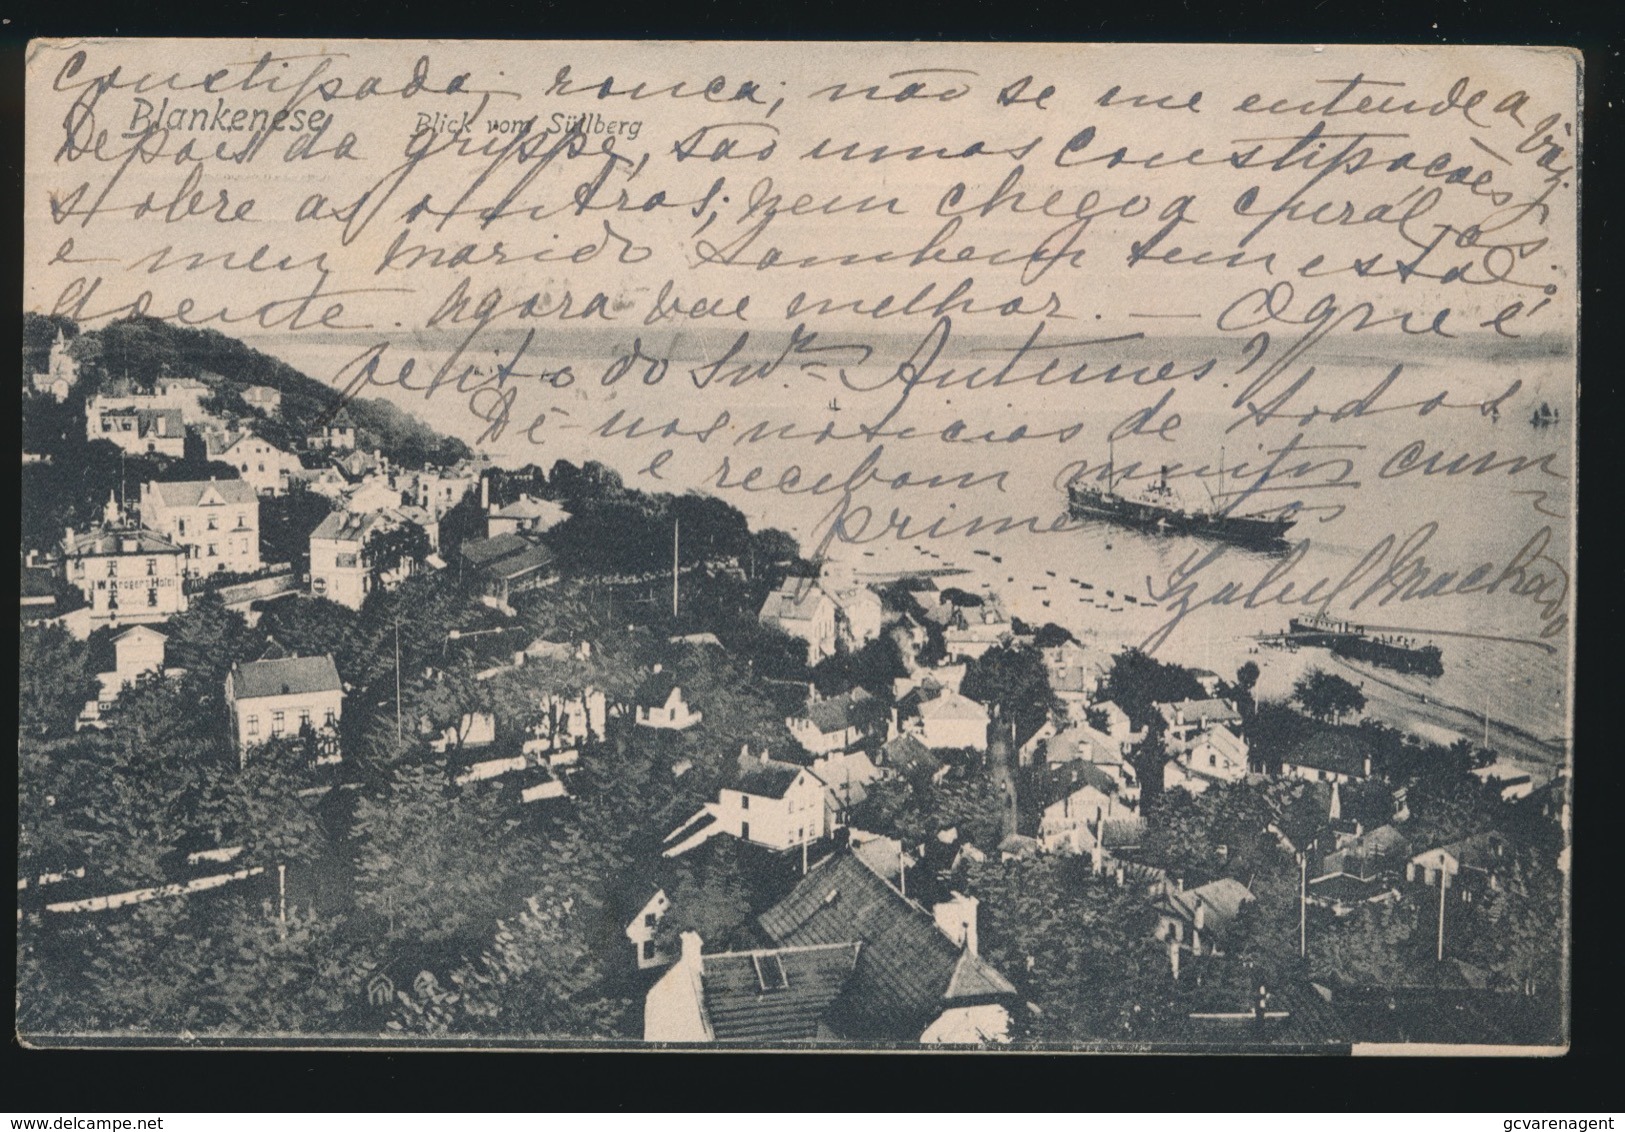 constipada, rouca; não se me entende a voz.
Blankenese Blick vom Süllberg
Depois da grippe, são umas constipações
sobre as outras; nem chego a curál-as
e meu marido tambem tem estado
doente. Agora vae melhor. — O que é
feito do Snr. Antunes?
Dê-nos noticias de todos
e recebam muitos cum-
primentos
Izabel Machado
W. Krögers Hotel
delcampe.net
gcvarenagent